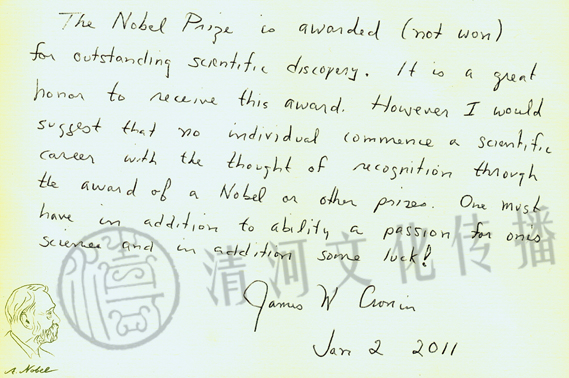 The Nobel Prize is awarded (not won)
for outstanding scientific discovery. It is a great
honor to receive this award. However I would
suggest that no individual commence a scientific
career with the thought of recognition through
the award of a Nobel or other prizes. One must
have in addition to ability a passion for ones
science and in addition some luck!
清河文化传播
James W Cronin
Jan 2 2011
A. Nobel